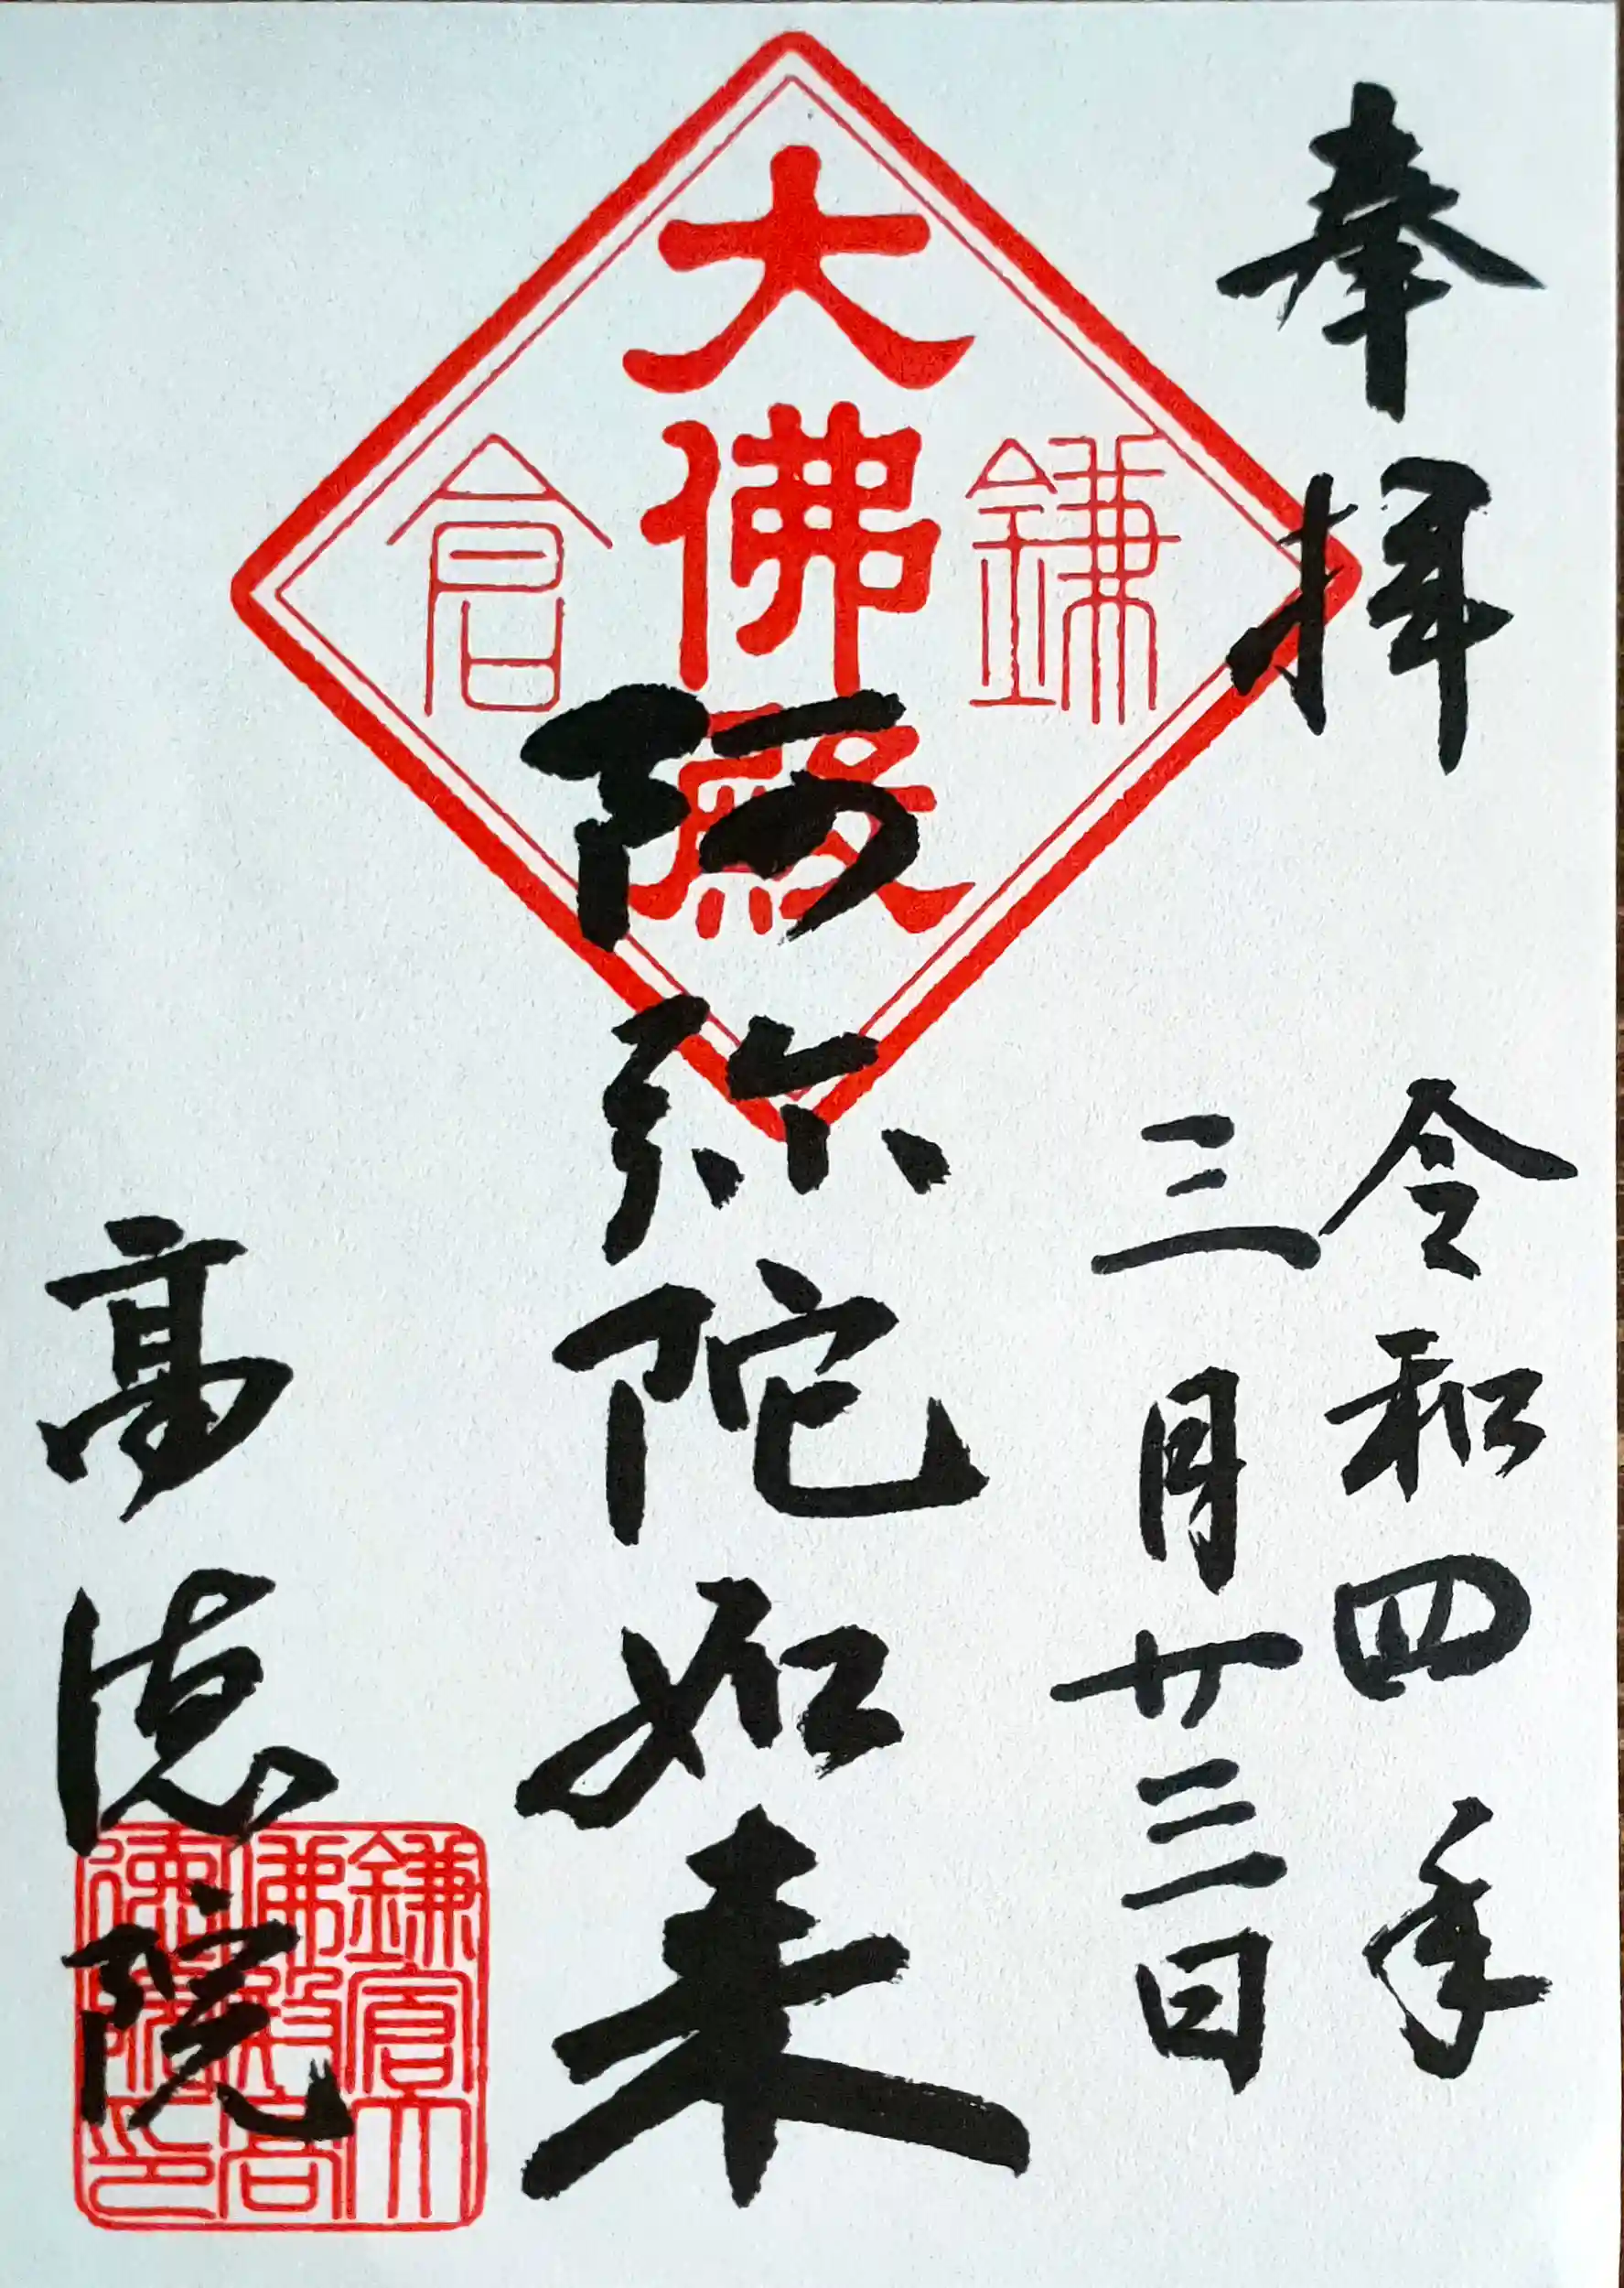 奉拝
令和四年
三月廿三日
鎌倉
大佛殿
阿弥陀如来
高徳院
鎌倉大
佛殿高
徳院印